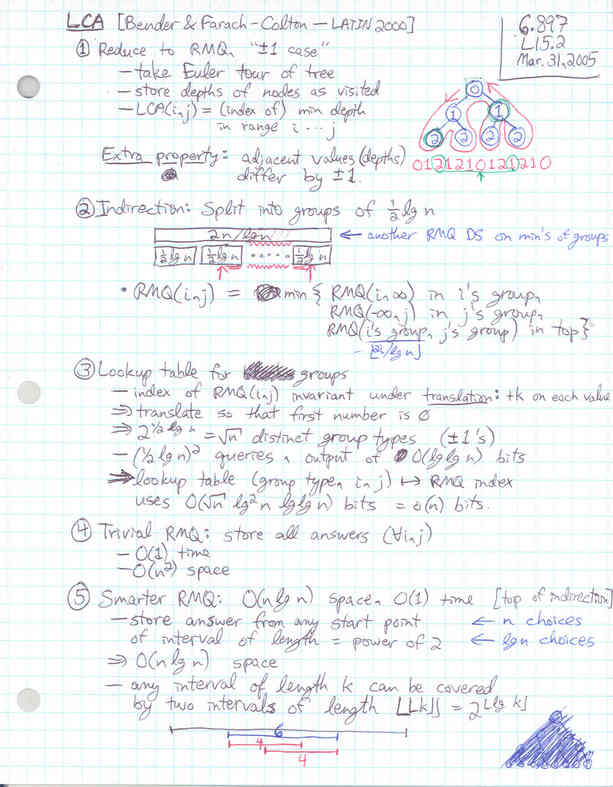 LCA [Bender & Farach-Colton — LATIN 2000]
6.897
L15.2
Mar. 31, 2005
① Reduce to RMQ, "±1 case"
— take Euler tour of tree
— store depths of nodes as visited
— LCA(i,j) = (index of) min depth
in range i ... j
Extra property: adjacent values (depths)
differ by ±1.
0
1
1
2
2
2
2
0121210121210
② Indirection: Split into groups of ½ lg n
2n/lg n
← another RMQ DS on min's of groups
½ lg n
½ lg n
....
½ lg n
• RMQ(i,j) = min { RMQ(i,∞) in i's group,
RMQ(-∞,j) in j's group,
RMQ(i's group, j's group) in top }
③ Lookup table for groups
— index of RMQ(i,j) invariant under translation: +k on each value
⇒ translate so that first number is 0
⇒ 2^(½ lg n) = √n distinct group types (±1's)
— (½ lg n)² queries, output of O(lg lg n) bits
⇒ lookup table (group type, i, j) ↦ RMQ index
uses O(√n lg² n lg lg n) bits = o(n) bits.
④ Trivial RMQ: store all answers (∀i,j)
— O(1) time
— O(n²) space
⑤ Smarter RMQ: O(n lg n) space, O(1) time [top of indirection]
— store answer from any start point ← n choices
of interval of length = power of 2 ← lg n choices
⇒ O(n lg n) space
— any interval of length k can be covered
by two intervals of length ⌊⌊k⌋⌋ = 2^⌊lg k⌋
6
4
4